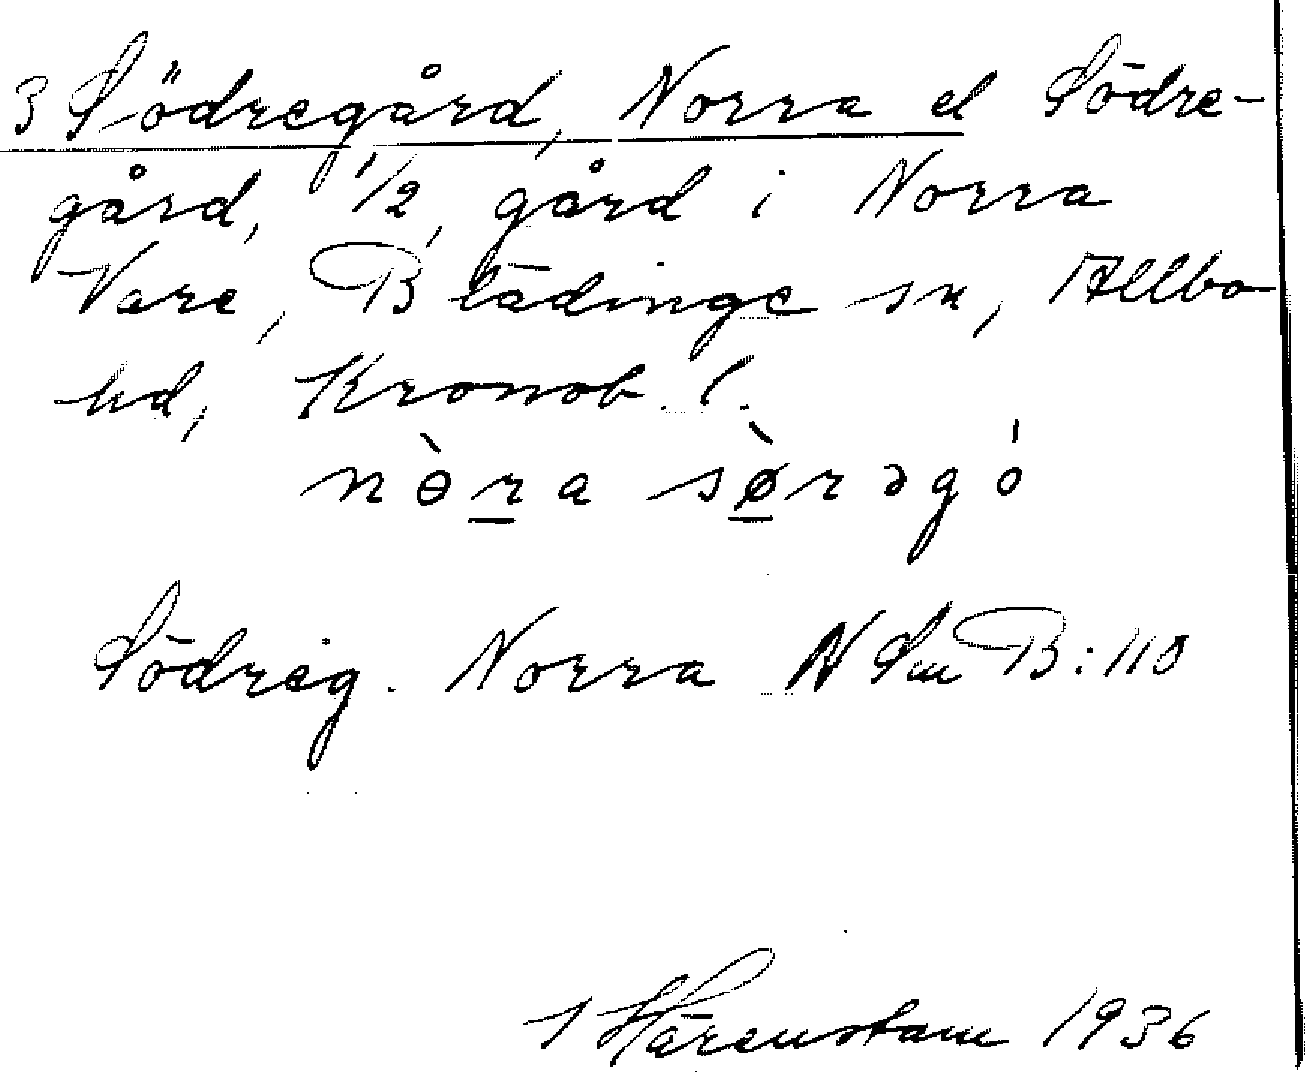 3 Södregård, Norra el Södre-
gård, 1/2 gård i Norra
Vare, Blädinge sn, Allbo
hd, Kronob. l.
nɵ̀ra sø̀rəgó
Södreg. Norra N Sm B:110
S Härenstam 1936